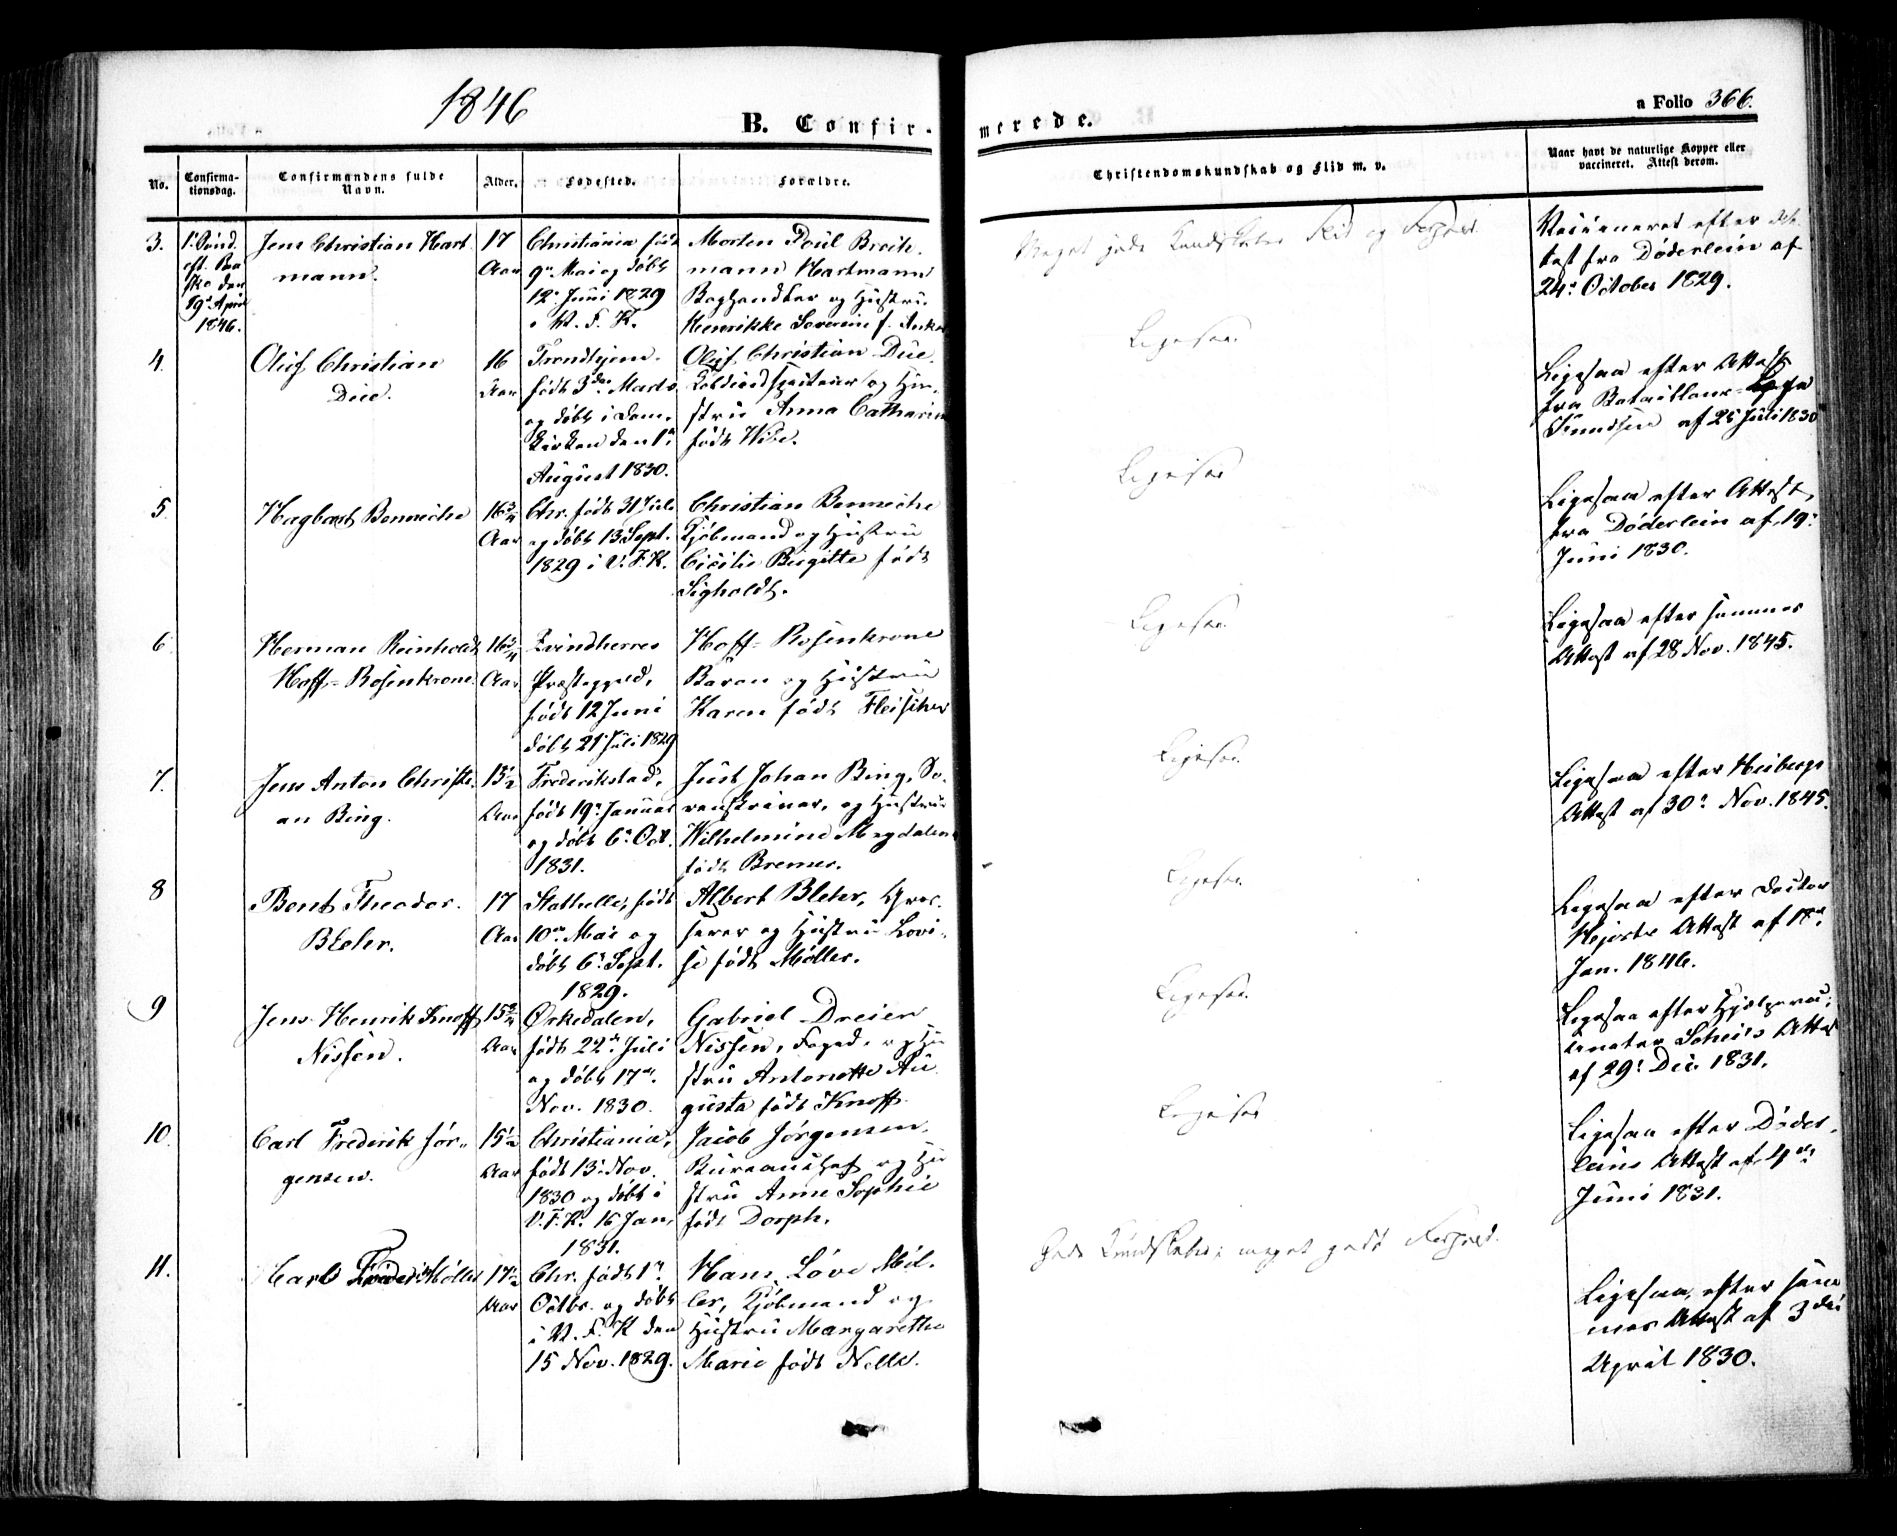 1846
B. Confir-
merede.
a Folio 366.
No.
Confirma-
tionsdag.
Confirmandens fulde
Navn.
Alder.
Fødested.
Forældre.
Christendomskundskab og Flid m. v.
Naar havt de naturlige Kopper eller
vaccineret. Attest derom.
3.
1ste Sønd.
eft. Paa
ske den
19de April
1846.
Jens Christian Hart
mann.
17
Aar
Christiania født
9de Mai og døbt
12te Juni 1829
i V. F. K.
Morten Poul Breit
mann Hartmann
Boghandler og Hustru
Henrikke Severine f. Anker
Meget gode Kundskaber Flid og Forhold.
Vaccineret efter At
test fra Døderlein af
24de October 1829.
4.
Oluf Christian
Due.
16
Aar
Trondhjem.
født 3die Marts
og døbt i Dom-
kirken den 1ste
August 1830.
Oluf Christian Due
og Hu-
stru Anna Catharina
født Wise.
Ligesaa.
Ligesaa efter Attest
fra Batallions-Læge
Knudsen af 25 Juli 1830
5.
Hagbart Benneche
16 3/4
Aar
Chr. født 31te Juli
og døbt 13 Sept.
1829 i V. F. K.
Christian Benneche
Kjøbmand og Hustru
Cicilie Birgitte født
Sigholdt.
Ligesaa
Ligesaa efter Attest
fra Døderlein af 19de
Juni 1830.
6.
Herman Reinholdt
Hoff-Rosenkrone.
16 3/4
Aar
Qvindherres
Præstegjeld,
født 12 Juni
døbt 21 Juli 1829
Hoff-Rosenkrone
Baron og Hustru
Karen født Fleischer
Ligesaa.
Ligesaa efter sammes
Attest af 28 Nov. 1845.
7.
Jens Anton Christi-
an Bing.
15 1/2
Aar
Frederikstad,
født 19de Januar
og døbt 6te Oct.
1831.
Just Johan Bing, So-
renskriver, og Hustru
Wilhelmine Magdalene
født Bremer.
Ligesaa.
Ligesaa efter Heibergs
Attest af 30te Nov. 1845.
8
Bent Theodor
Blehr.
17
Aar
Stathelle, født
10de Mai og
døbt 6te Sept.
1829.
Albert Blehr, Gros-
serer og Hustru Lovi-
se født Møller.
Ligesaa.
Ligesaa efter Doctor
Attest af 18de
Jan. 1846.
9
Jens Henrik Knoff
Nissen.
15 3/4
Aar
Ørkedalen,
født 22de Juli
og døbt 17de
Nov. 1830.
Gabriel Dreier
Nissen, Foged, og Hu
stru Antonette Au
gusta født Knoff.
Ligesaa.
Ligesaa efter Hjelpevac-
cinatør Attest
af 29de Dec. 1831.
10.
Carl Frederik Jør-
gensen.
15 1/2
Aar
Christiania,
født 13de Nov.
1830 og døbt i
V. F. K. 16 Jan.
1831.
Jacob Jørgensen,
Bureauchef og Hu
stru Anne Sophie
født Dorph.
Ligesaa
Ligesaa efter Døder-
leins Attest af 4de
Juni 1831.
11.
Carl Frederik Møller
17 1/2
Aar
Chr. født 1ste
Octbr. og døbt
i V. F. K den
15 Nov. 1829.
Hans Løve Møl-
ler, Kjøbmand og
Hustru Margarethe
Marie født Nelle.
Gode Kundskaber, meget godt Forhold.
Ligesaa, efter sam-
mes Attest af 3die
April 1830.